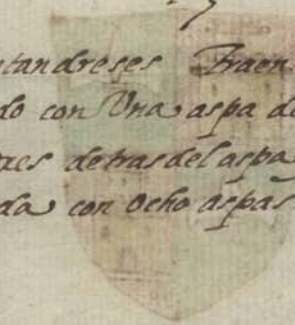 ntandreses Traen
do con Una aspa de
zes detras del aspa
da con ocho aspas